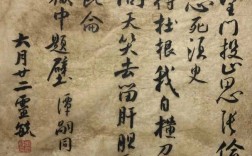 望門投止思張儉
忍死須臾
待杜根我自横刀
向天笑去留肝膽
昆侖
獄中題壁 譚嗣同
六月廿二靈